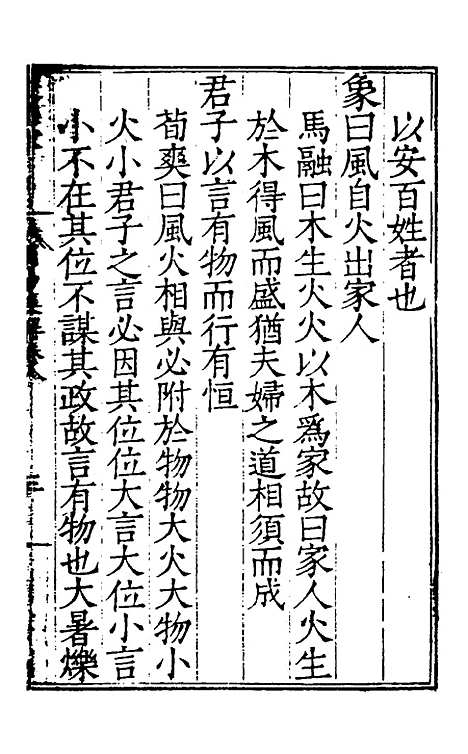 以安百姓者也
象曰風自火出家人
馬融曰木生火火以木爲家故曰家人火生
於木得風而盛猶夫婦之道相須而成
君子以言有物而行有恒
荀爽曰風火相與必附於物物大火大物小
火小君子之言必因其位位大言大位小言
小不在其位不謀其政故言有物也大暑爍